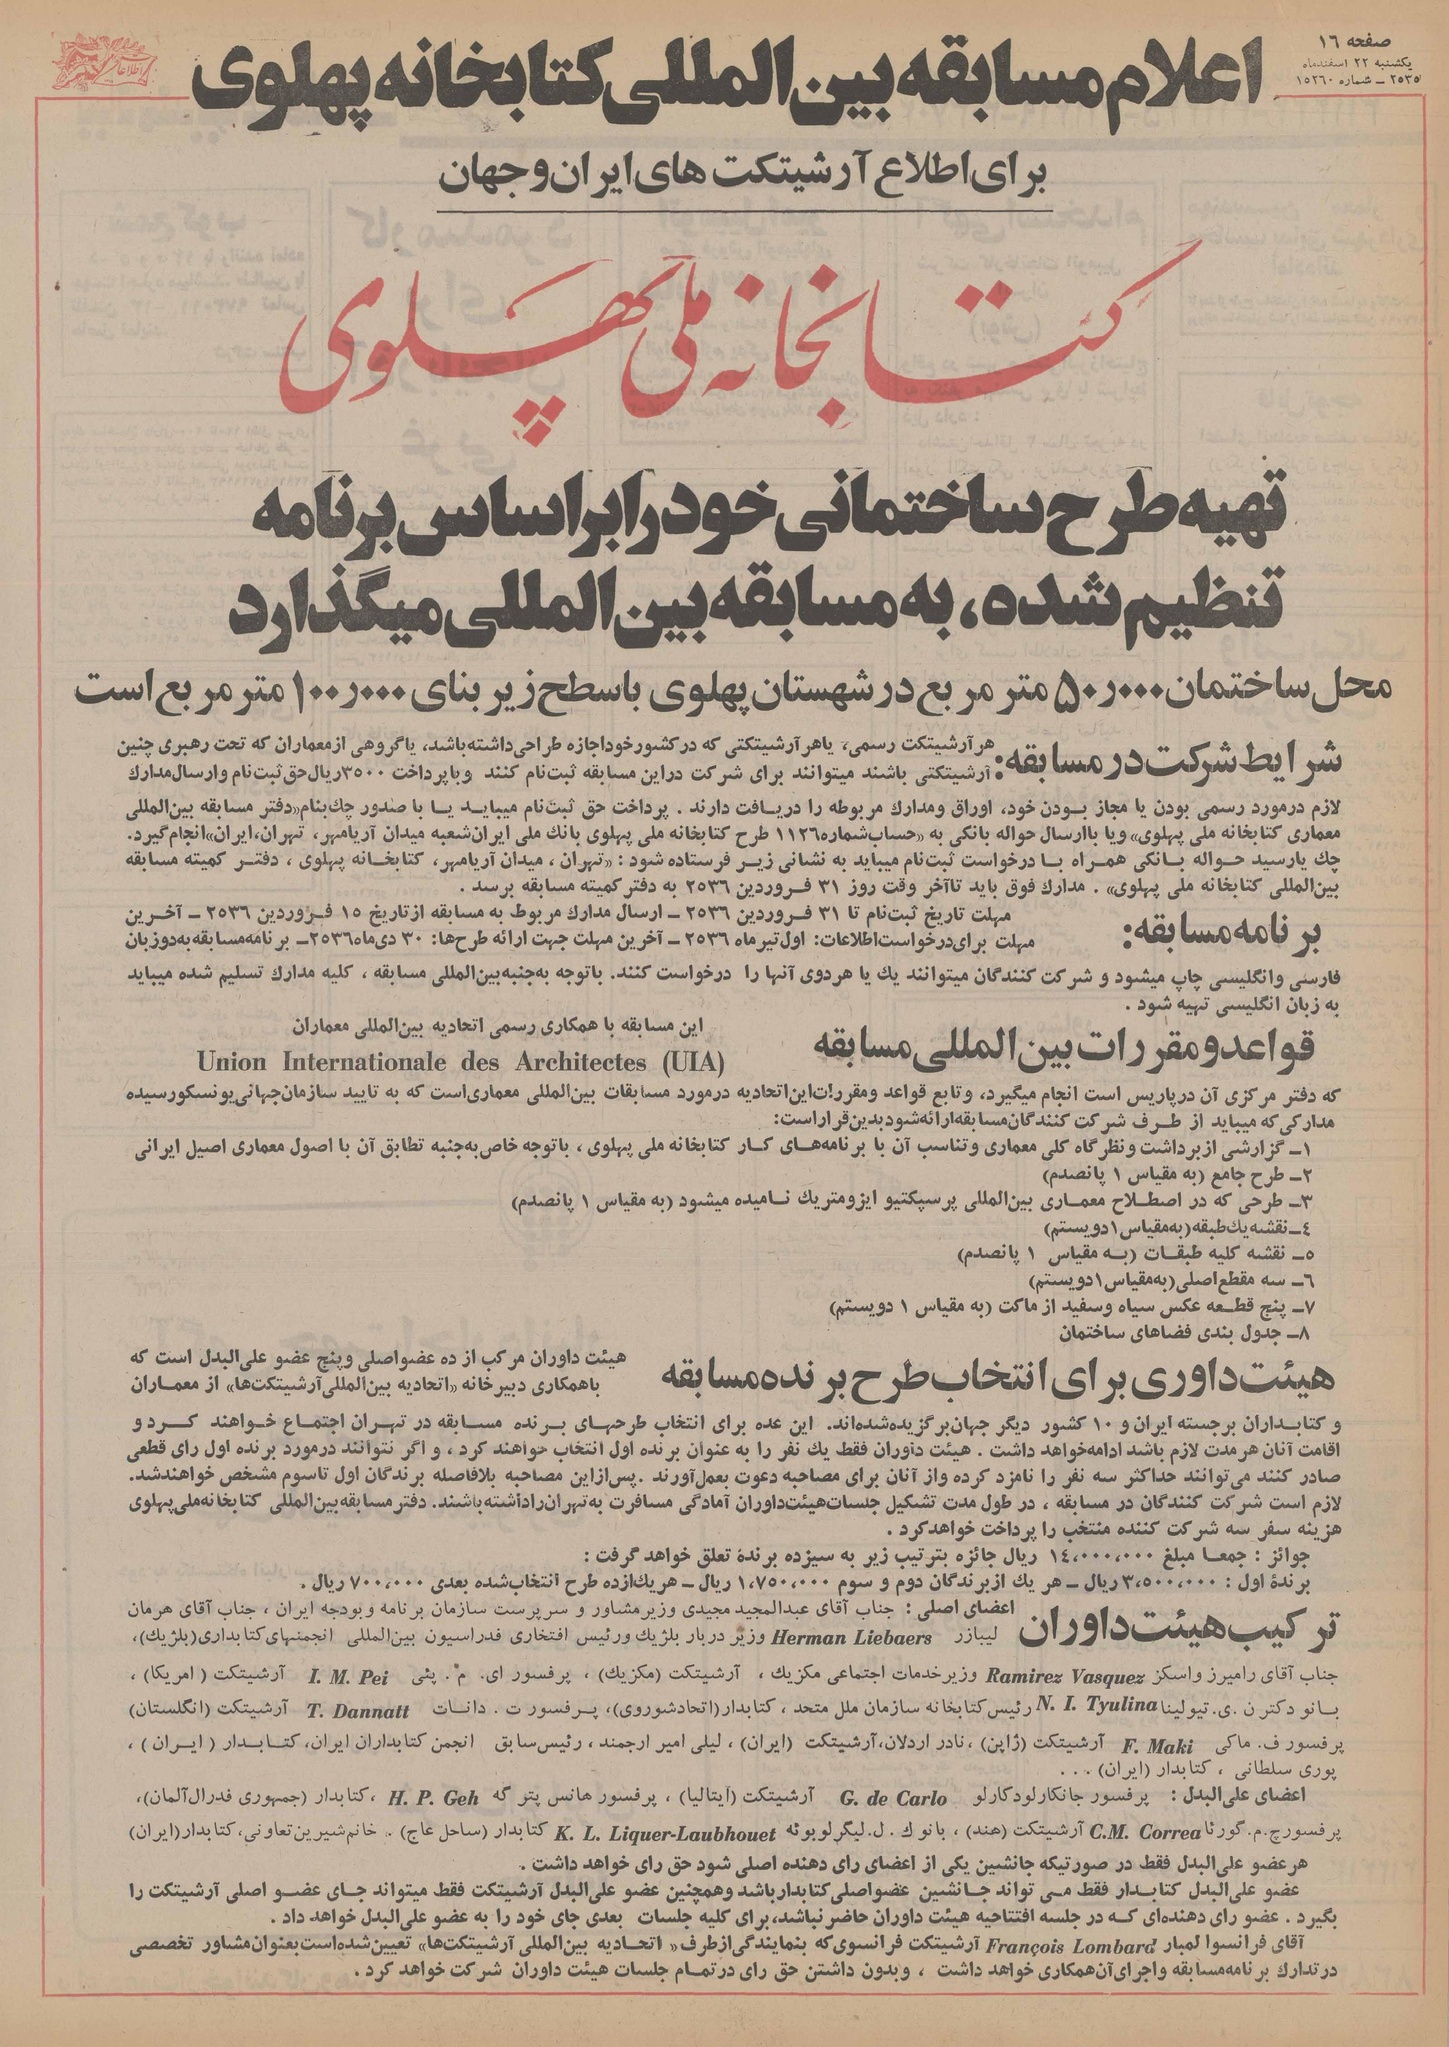 صفحه ۱۶
یکشنبه ۲۲ اسفندماه
۲۵۳۵ – شماره ۱۵۲۶۰
اطلاعات
اعلام مسابقه بین‌المللی کتابخانه پهلوی
برای اطلاع آرشیتکت های ایران و جهان
کتابخانه ملی پهلوی
تهیه طرح ساختمانی خود را بر اساس برنامه
تنظیم شده، به مسابقه بین المللی میگذارد
محل ساختمان ۵۰٫۰۰۰ متر مربع در شهستان پهلوی با سطح زیر بنای ۱۰۰٫۰۰۰ متر مربع است
شرایط شرکت در مسابقه:
هر آرشیتکت رسمی، یا هر آرشیتکتی که در کشور خود اجازه طراحی داشته باشد، یا گروهی از معماران که تحت رهبری چنین
آرشیتکتی باشند میتوانند برای شرکت در این مسابقه ثبت‌نام کنند و با پرداخت ۳۵۰۰ ریال حق ثبت‌نام و ارسال مدارک
لازم در مورد رسمی بودن یا مجاز بودن خود، اوراق و مدارک مربوطه را دریافت دارند . پرداخت حق ثبت‌نام میباید یا با صدور چك بنام «دفتر مسابقه بین‌المللی
معماری کتابخانه ملی پهلوی» و یا با ارسال حواله بانکی به «حساب شماره ۱۱۲۶ طرح کتابخانه ملی پهلوی بانك ملی ایران شعبه میدان آریامهر، تهران، ایران» انجام گیرد.
چك یا رسید حواله بانکی همراه با درخواست ثبت‌نام میباید به نشانی زیر فرستاده شود : «تهران ، میدان آریامهر، کتابخانه پهلوی ، دفتر کمیته مسابقه
بین‌المللی کتابخانه ملی پهلوی» . مدارك فوق باید تا آخر وقت روز ۳۱ فروردین ۲۵۳۶ به دفتر کمیته مسابقه برسد .
برنامه مسابقه:
مهلت تاریخ ثبت‌نام تا ۳۱ فروردین ۲۵۳۶ – ارسال مدارك مربوط به مسابقه از تاریخ ۱۵ فروردین ۲۵۳۶ – آخرین
مهلت برای درخواست اطلاعات: اول تیر ماه ۲۵۳۶ – آخرین مهلت جهت ارائه طرح‌ها: ۳۰ دی ماه ۲۵۳۶– برنامه مسابقه به دو زبان
فارسی و انگلیسی چاپ میشود و شرکت کنندگان میتوانند یك یا هر دوی آنها را درخواست کنند. با توجه به جنبه بین‌المللی مسابقه ، کلیه مدارك تسلیم شده میباید
به زبان انگلیسی تهیه شود .
قواعد و مقررات بین المللی مسابقه
این مسابقه با همکاری رسمی اتحادیه بین‌المللی معماران
Union Internationale des Architectes (UIA)
که دفتر مرکزی آن در پاریس است انجام میگیرد، و تابع قواعد و مقررات این اتحادیه در مورد مسابقات بین‌المللی معماری است که به تایید سازمان جهانی یونسکو رسیده
مدارکی که میباید از طرف شرکت کنندگان مسابقه ارائه شود بدین قرار است:
۱– گزارشی از برداشت و نظر گاه کلی معماری و تناسب آن با برنامه‌های کار کتابخانه ملی پهلوی ، با توجه خاص به جنبه تطابق آن با اصول معماری اصیل ایرانی
۲– طرح جامع (به مقیاس ۱ پانصدم)
۳– طرحی که در اصطلاح معماری بین‌المللی پرسپکتیو ایزومتریك نامیده میشود (به مقیاس ۱ پانصدم)
٤– نقشه یك طبقه (به مقیاس ۱ دویستم)
۵– نقشه کلیه طبقات (به مقیاس ۱ پانصدم)
۶– سه مقطع اصلی (به مقیاس ۱ دویستم)
۷– پنج قطعه عکس سیاه و سفید از ماکت (به مقیاس ۱ دویستم)
۸– جدول بندی فضاهای ساختمان
هیئت داوری برای انتخاب طرح برنده مسابقه
هیئت داوران مرکب از ده عضو اصلی و پنج عضو علی‌البدل است که
با همکاری دبیرخانه «اتحادیه بین‌المللی آرشیتکت‌ها» از معماران
و کتابداران برجسته ایران و ۱۰ کشور دیگر جهان برگزیده شده‌اند. این عده برای انتخاب طرحهای برنده مسابقه در تهران اجتماع خواهند کرد و
اقامت آنان هر مدت لازم باشد ادامه خواهد داشت . هیئت داوران فقط یك نفر را به عنوان برنده اول انتخاب خواهند کرد ، و اگر نتوانند در مورد برنده اول رای قطعی
صادر کنند می‌توانند حداکثر سه نفر را نامزد کرده و از آنان برای مصاحبه دعوت بعمل آورند . پس از این مصاحبه بلافاصله برندگان اول تا سوم مشخص خواهند شد.
لازم است شرکت کنندگان در مسابقه ، در طول مدت تشکیل جلسات هیئت داوران آمادگی مسافرت به تهران را داشته باشند. دفتر مسابقه بین‌المللی کتابخانه ملی پهلوی
هزینه سفر سه شرکت کننده منتخب را پرداخت خواهد کرد .
جوائز : جمعا مبلغ ۱٤،۰۰۰،۰۰۰ ریال جائزه بترتیب زیر به سیزده برندهٔ تعلق خواهد گرفت :
برندهٔ اول : ۳،۵۰۰،۰۰۰ ریال – هر یك از برندگان دوم و سوم ۱،۷۵۰،۰۰۰ ریال – هر یك از ده طرح انتخاب شده بعدی ۷۰۰،۰۰۰ ریال .
ترکیب هیئت داوران
اعضای اصلی : جناب آقای عبدالمجید مجیدی وزیر مشاور و سرپرست سازمان برنامه و بودجه ایران ، جناب آقای هرمان
لیبارز Herman Liebaers وزیر دربار بلژیك و رئیس افتخاری فدراسیون بین‌المللی انجمنهای کتابداری (بلژیك)،
جناب آقای رامیرز واسکز Ramirez Vasquez وزیر خدمات اجتماعی مکزیك ، آرشیتکت (مکزیك) ، پرفسور ای. م. پئی I. M. Pei آرشیتکت ( امریکا) ،
بانو دکتر ن . ی . تیولینا N. I. Tyulina رئیس کتابخانه سازمان ملل متحد ، کتابدار (اتحاد شوروی)، پرفسور ت . دانات T. Dannatt آرشیتکت (انگلستان)
پرفسور ف. ماکی F. Maki آرشیتکت (ژاپن) ، نادر اردلان، آرشیتکت (ایران) ، لیلی امیر ارجمند ، رئیس سابق انجمن کتابداران ایران، کتابدار ( ایران ) ،
پوری سلطانی ، کتابدار (ایران) . . .
اعضای علی‌البدل : پرفسور جانکارلو دکارلو G. de Carlo آرشیتکت (ایتالیا) ، پرفسور هانس پتر گه H. P. Geh ، کتابدار (جمهوری فدرال آلمان)،
پرفسور چ . م . گورئا C.M. Correa آرشیتکت (هند) ، بانو ك . ل . لیگر لوبوئه K. L. Liquer-Laubhouet کتابدار (ساحل عاج) . خانم شیرین تعاونی، کتابدار (ایران)
هر عضو علی‌البدل فقط در صورتیکه جانشین یکی از اعضای رای دهنده اصلی شود حق رای خواهد داشت .
عضو علی‌البدل کتابدار فقط می تواند جانشین عضو اصلی کتابدار باشد و همچنین عضو علی‌البدل آرشیتکت فقط میتواند جای عضو اصلی آرشیتکت را
بگیرد . عضو رای دهنده‌ای که در جلسه افتتاحیه هیئت داوران حاضر نباشد، برای کلیه جلسات بعدی جای خود را به عضو علی‌البدل خواهد داد .
آقای فرانسوا لمبار François Lombard آرشیتکت فرانسوی که بنمایندگی از طرف « اتحادیه بین‌المللی آرشیتکت‌ها» تعیین شده است بعنوان مشاور تخصصی
در تدارك برنامه مسابقه و اجرای آن همکاری خواهد داشت ، و بدون داشتن حق رای در تمام جلسات هیئت داوران شرکت خواهد کرد .